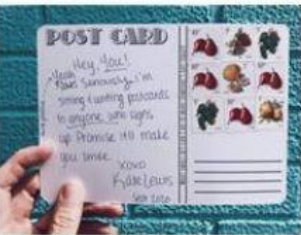 POST CARD
Hey, You!
Yeah
Seriously. I'm
writing postcards
to anyone who signs
up. Promise it'll make
you smile.
xoxo
Kate Lewis
Sept 2020